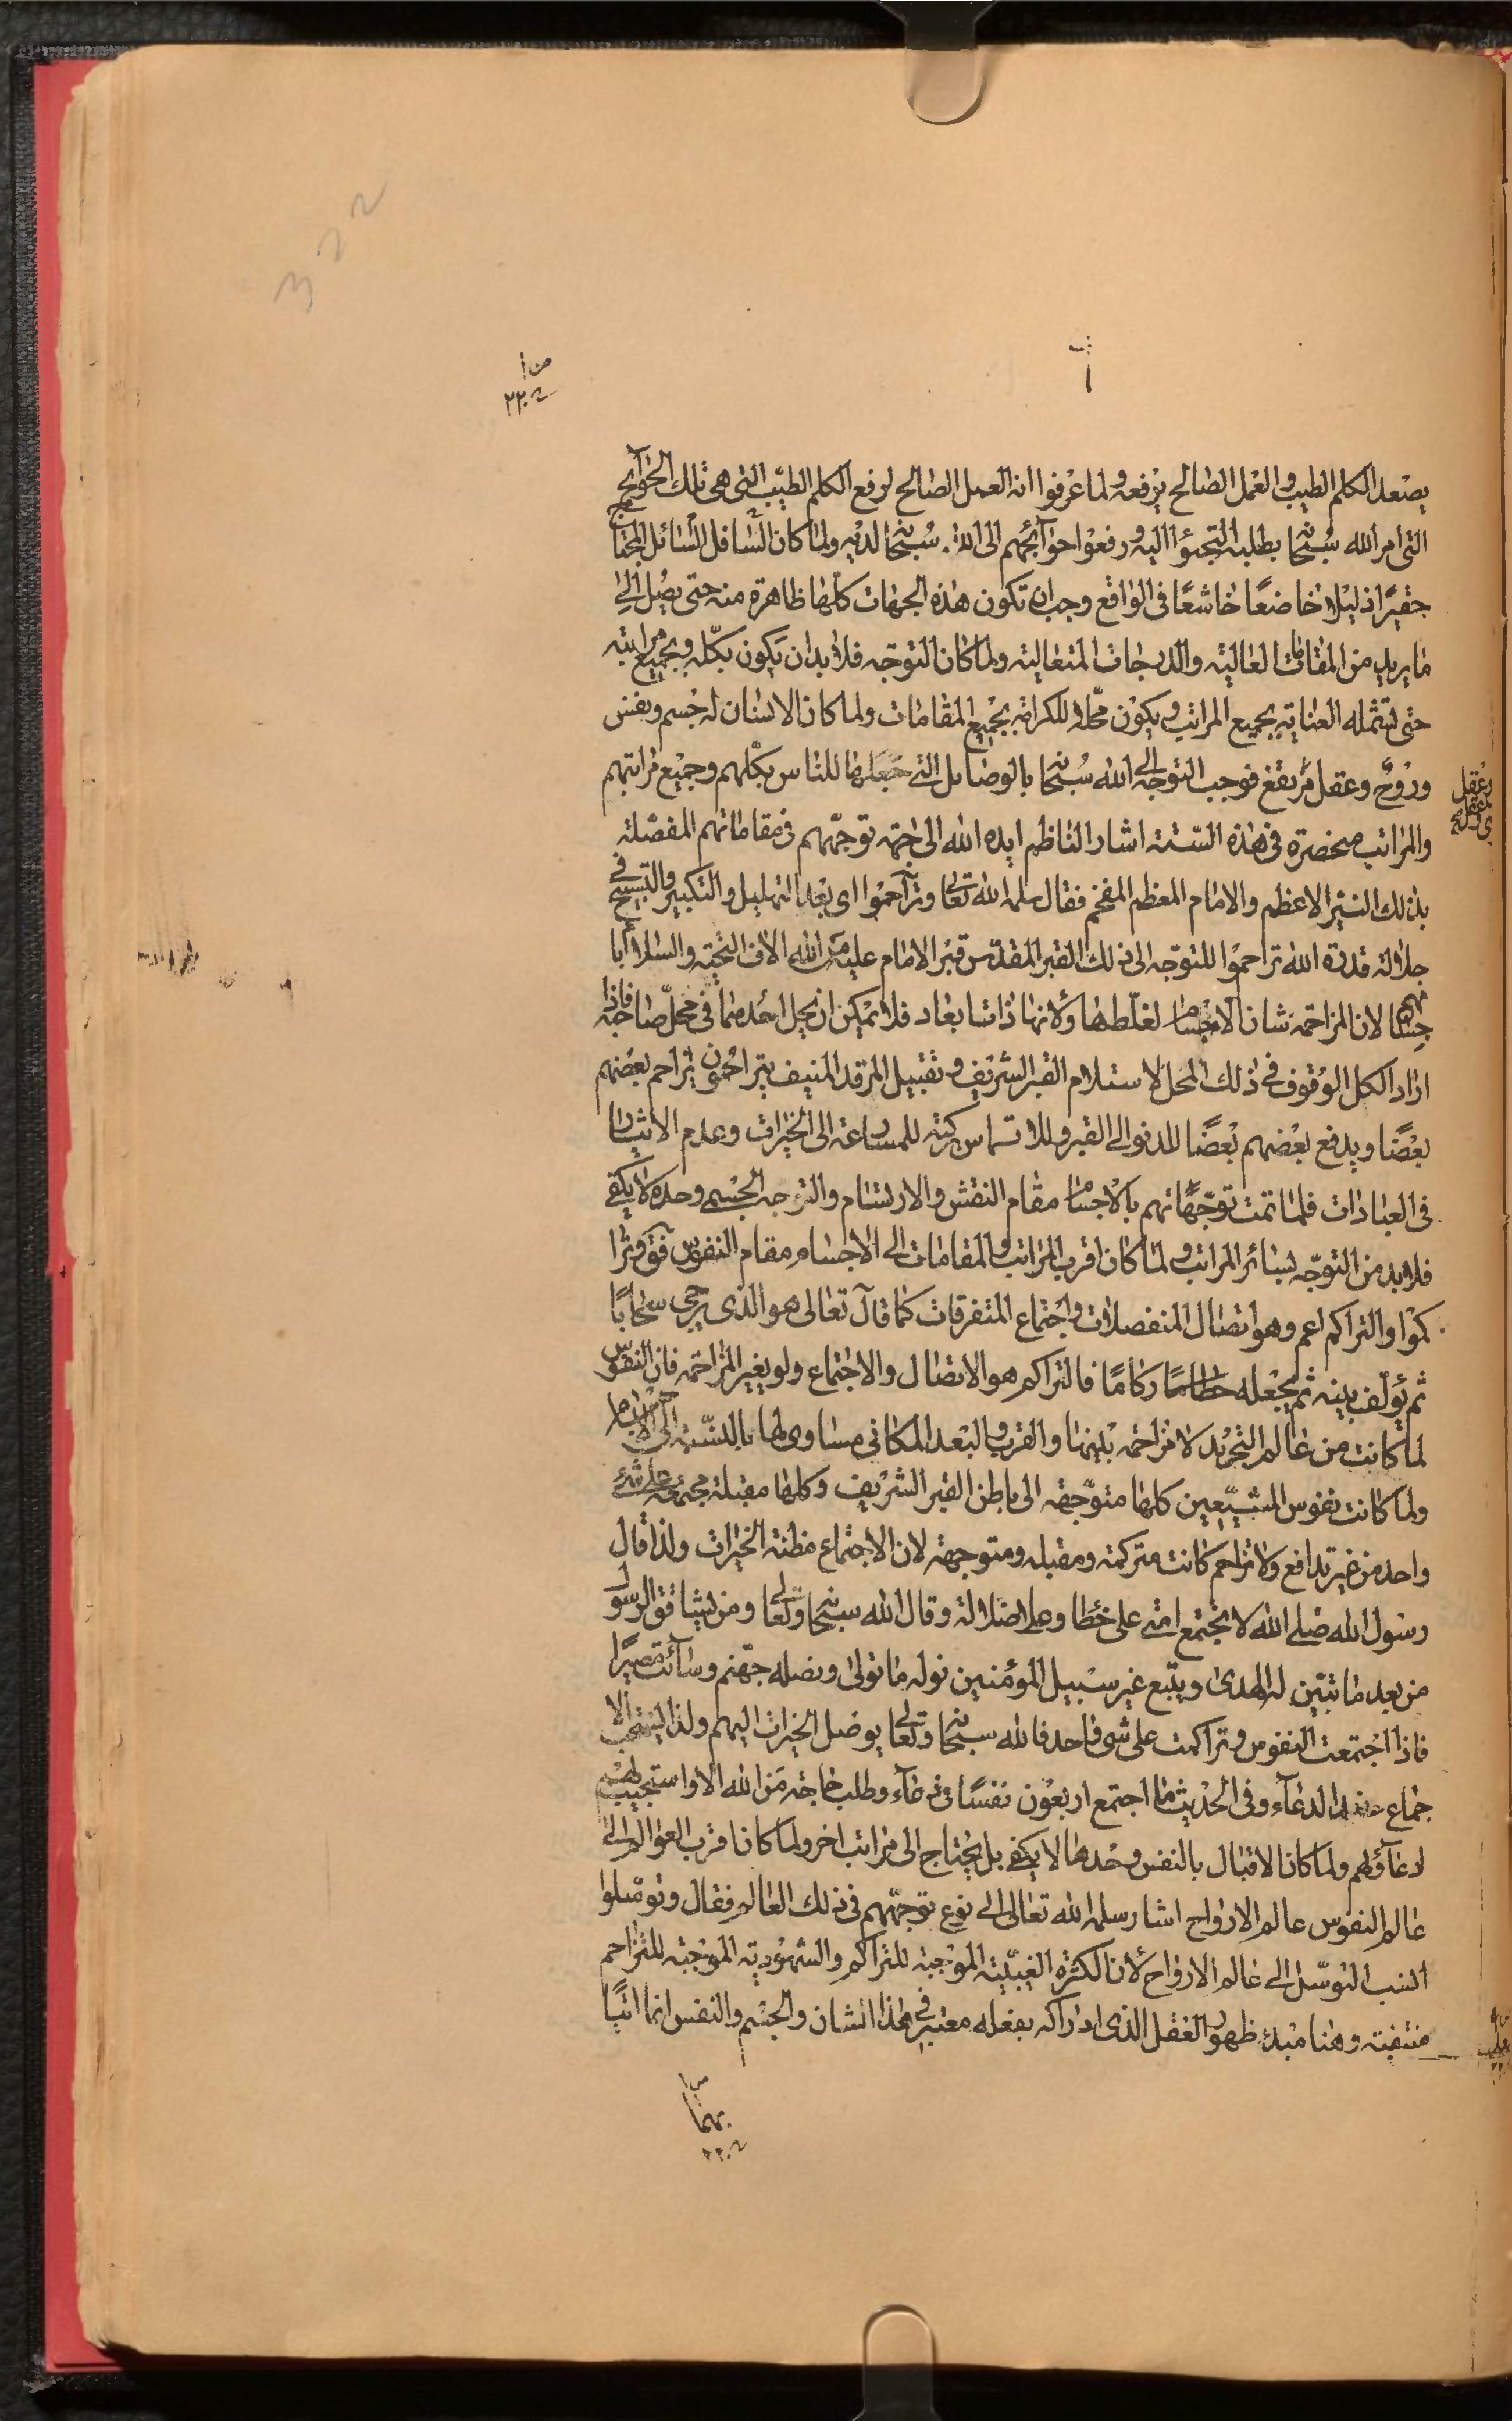 يصعد الكلم الطيب والعمل الصالح يرفعه ولما عرفوا ان العمل الصالح لرفع الكلم الطيب التى هى تلك الحوآئج
التى امر الله سبحانه بطلبه التجئوا اليه ورفعوا حوآئجهم الى الله سبحانه لديه ولما كان السّافل السّائل المحتاج
حقيرًا ذليلا خاضعًا خاشعًا فى الواقع وجب ان تكون هذه الجهات كلها ظاهرة منه حتى يصل الى
ما يريد من المقامات العالية والدرجات المتعالية ولما كان التوجّه فلا بد ان يكون بكلّه وبجميع مراتبه
حتى تشمله العناية بجميع المراتب ويكون محلّا للكرامة بجميع المقامات ولما كان الانسان له جسم ونفس
وروح وعقل مرتفع فوجب التوجّه الى الله سبحانه بالوصايل التى جعلها للناس بكلّهم وجميع مراتبهم
والمراتب منحصرة فى هذه الستة اشار الناظم ايده الله الى جهة توجّههم فى مقاماتهم المفصّلة
بذلك النير الاعظم والامام المعظم المفخم فقال سلمه الله تعالى وتزآحموا اى بعد التهليل والتكبير والتسبيح فى
جلالة قدرة الله تزاحموا للتوجّه الى ذلك القبر المقدّس قبر الامام عليه من الله الاف التحية والسلام
لان المزاحمة شان الاجسام لغلّظها ولانها ذات ابعاد فلا يمكن ان يحل احدهما فى محلّ صاحبه فاذا
اراد الكل الوقوف فى ذلك المحل لاستلام القبر الشريف وتقبيل المرقد المنيف يتزاحمون يزاحم بعضهم
بعضًا ويدفع بعضهم بعضًا للدنو الى القبر وللالتماس بركته للمسارعة الى الخيرات وعدم الايثار
فى العبادات فلما تمت توجّهاتهم بالاجسام مقام النقش والارتسام والتوجه الجسمى وحده لا يكفى
فلا بد من التوجّه بسائر المراتب ولما كان اقرب المراتب والمقامات الى الاجسام مقام النفوس فق وترا
كموا والتراكم اعم وهو اتصال المنفصلات واجتماع المتفرقات كما قال تعالى هو الذى يزجى سحابًا
ثم يؤلف بينه ثم يجعله ركامًا فالتراكم هو الاتصال والاجتماع ولو بغير المزاحمة فان النفوس
لما كانت من عالم التجريد لا مزاحمة بينها والقرب والبعد المكانى مساوى لها بالنسبة الى الاجسام
ولما كانت نفوس المشيّعين كلها متوّجهة الى باطن القبر الشريف وكلها مقبلة مجتمعة على شئ
واحد من غير تدافع ولا تزاحم كانت متركمة ومقبله ومتوجهة لان الاجتماع مظنة الخيرات ولذا قال
رسول الله صلى الله لا تجتمع امتى على خطا وعلى ضلالة وقال الله سبحانه وتعالى ومن يشاقق الرسول
من بعد ما تبيّن له الهدى ويتبع غير سبيل المؤمنين نوله ما تولى ونصله جهنم وسآئت مصيرًا
فاذا اجتمعت النفوس وتراكمت على شى واحد فالله سبحانه وتعالى يوصل الخيرات اليهم ولذا يستحب الا
جماع عند الدعآء وفى الحديث ما اجتمع اربعون نفسًا فى دعآء وطلب حاجة من الله الا واستجيب لهم
دعآؤهم ولما كان الاقبال بالنفس وحدها لا يكفى بل يحتاج الى مراتب اخر ولما كان اقرب العوالم الى
عالم النفوس عالم الارواح اشار سلمه الله تعالى الى نوع توجّههم فى ذلك العالم فقال وتوسّلوا
انسب التوسّل الى عالم الارواح لان الكثرة الغيبيّة الموجبة للتراكم والشهودية الموجبة للتزاحم
منتفية وهنا مبدء ظهور العقل الذى ادراكه بفعله معتبر فى هذا الشان والجسم والنفس انما اتيا